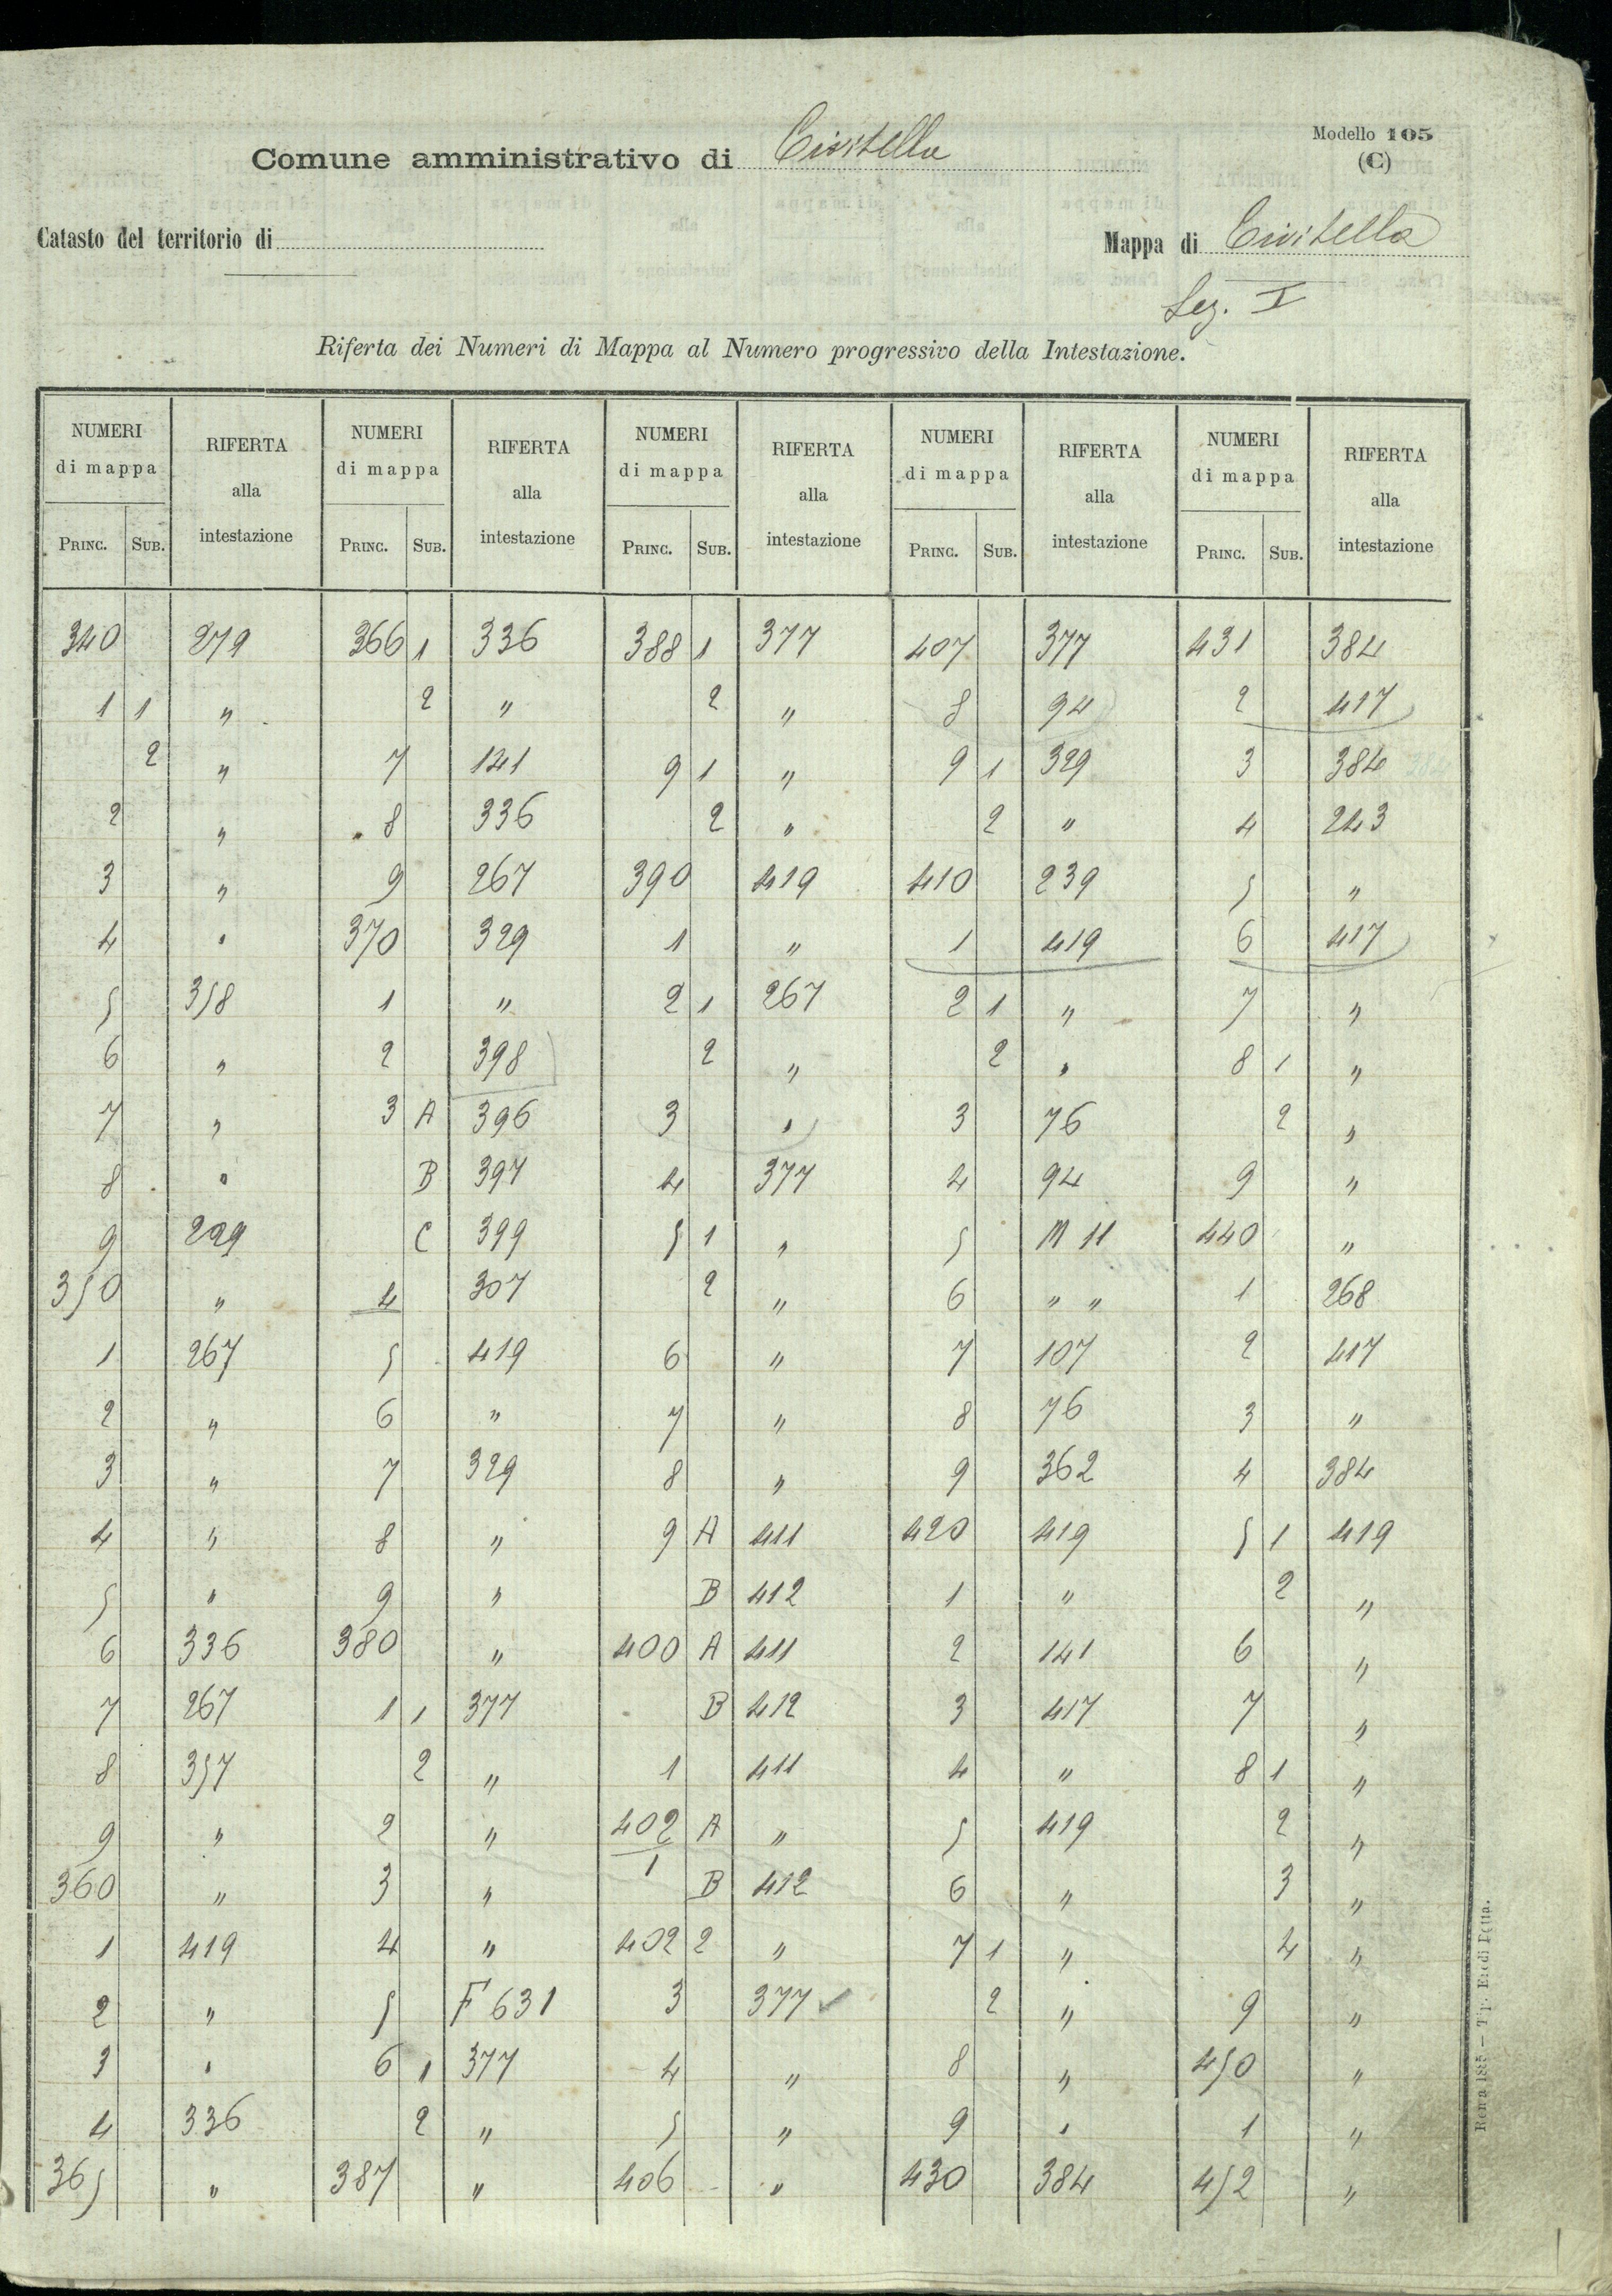 Modello 105
(C)
Comune amministrativo di Civitella
Catasto del territorio di
Mappa di Civitella
Sez. I
Riferta dei Numeri di Mappa al Numero progressivo della Intestazione.
NUMERI di mappa RIFERTA alla intestazione NUMERI di mappa RIFERTA alla intestazione NUMERI di mappa RIFERTA alla intestazione NUMERI di mappa RIFERTA alla intestazione NUMERI di mappa RIFERTA alla intestazione
PRINC. SUB. PRINC. SUB. PRINC. SUB. PRINC. SUB. PRINC. SUB.
340 279 366 1 336 388 1 377 407 377 431 384
1 1 " 2 " 2 " 8 94 2 417
2 " 7 141 9 1 " 9 1 329 3 384
2 " 8 336 2 " 2 " 4 243
3 " 9 267 390 419 410 239 5 "
4 " 370 329 1 " 1 419 6 417
5 358 1 " 2 1 267 2 1 " 7 "
6 " 2 398 2 " 2 " 8 1 "
7 " 3 A 396 3 " 3 76 2 "
8 " B 397 4 377 4 94 9 "
9 299 C 399 5 1 " 5 M 11 440 "
350 " 4 307 2 " 6 " " 1 268
1 267 5 419 6 " 7 107 2 417
2 " 6 " 7 " 8 76 3 "
3 " 7 329 8 " 9 362 4 384
4 " 8 " 9 A 411 420 419 5 1 419
5 " 9 " B 412 1 " 2 "
6 336 380 " 400 A 411 2 141 6 "
7 267 1 1 377 B 412 3 417 7 "
8 357 2 " 1 411 4 " 8 1 "
9 " 2 " 402/1 A " 5 419 2 "
360 " 3 " B 412 6 " 3 "
1 419 4 " 402 2 " 7 1 " 4 "
2 " 5 F 631 3 377 2 " 9 "
3 " 6 1 377 4 " 8 " 450 "
4 336 2 " 5 " 9 " 1 "
365 " 387 " 406 " 430 384 452 "